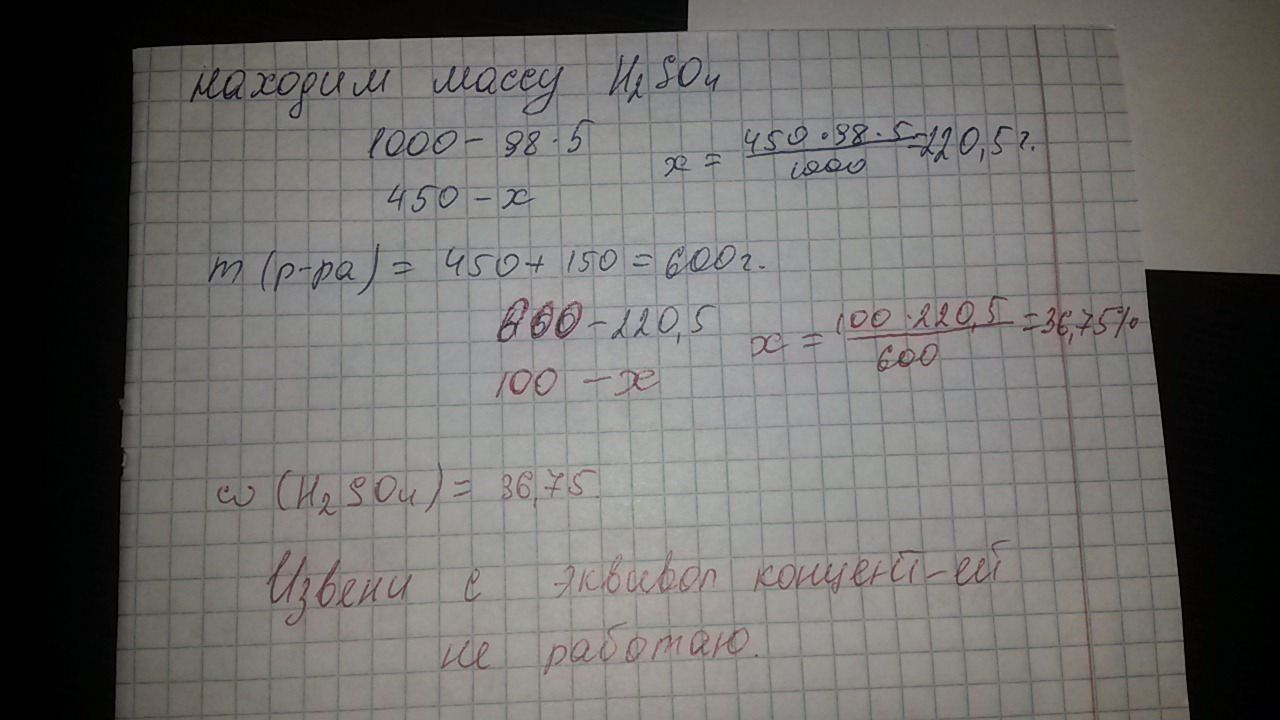 находим массу H₂SO₄
1000 - 98 · 5
450 - x
x = 450 · 98 · 5 / 1000 = 220,5 г.
m (р-ра) = 450 + 150 = 600 г.
600 - 220,5
100 - x
x = 100 · 220,5 / 600 = 36,75%
ω (H₂SO₄) = 36,75.
Извени с эквивол концент-ей
не работаю.